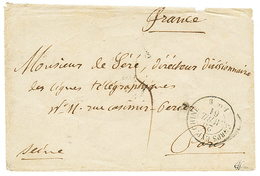 France
Monsieur de Géré, directeur divisionnaire
des lignes télégraphiques
N° 11. rue casimir Perier
Paris
Seine